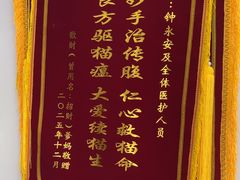 ：钟永安及全体医护人员
妙手治传腹 仁心救猫命
良方驱猫瘟 大爱续猫生
散财（曾用名：招财）爹妈敬赠
二〇二五年十二月